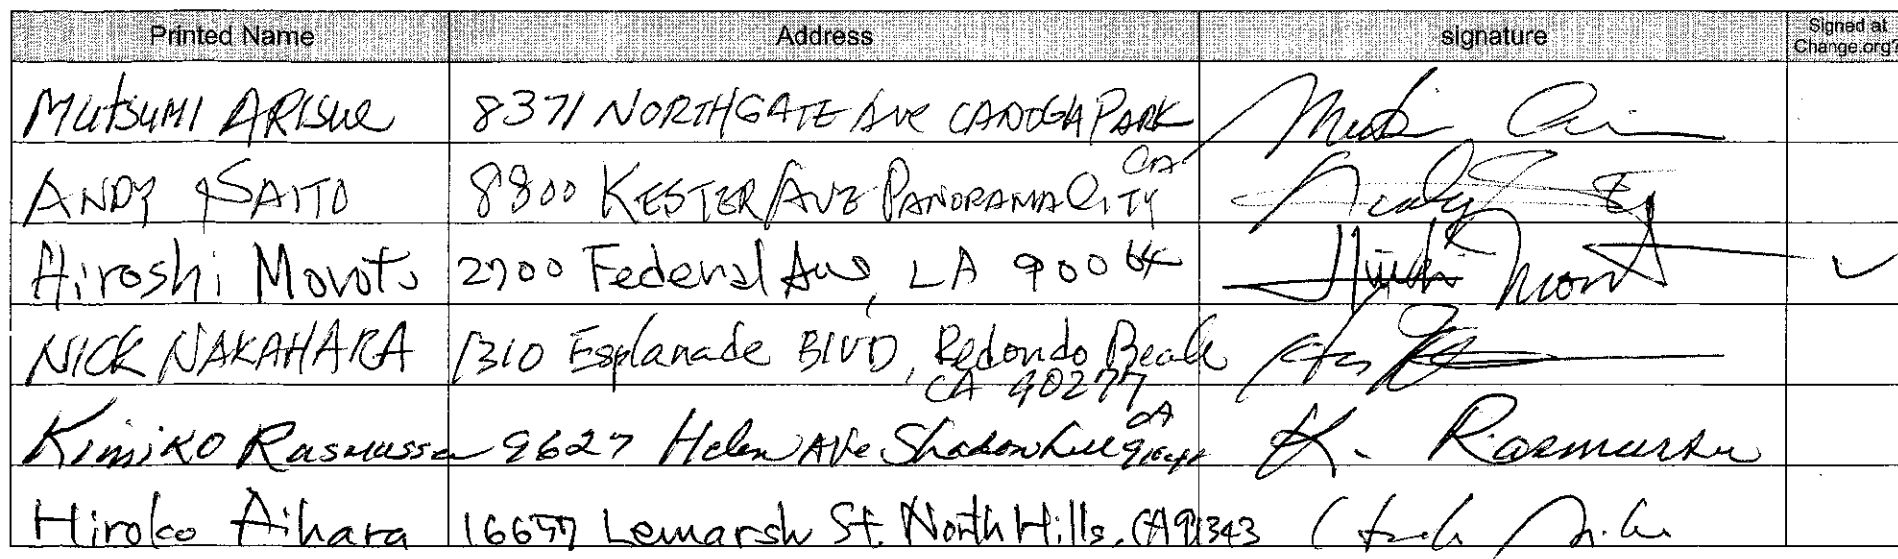 Printed Name Address signature Signed at Change.org?
MUTSUMI ARISUE 8371 NORTHGATE AVE CANOGA PARK CA
ANDY SAITO 8800 KESTER AVE PANORAMA CITY
Hiroshi Moroto 2700 Federal Ave, LA 90064 ✓
NICK NAKAHARA 1310 Esplanade BLVD, Redondo Beach
CA 90277
KimiKO Rasmussen 9627 Helen AVe Shadow Hill CA K. Rasmussen
Hiroko Aihara Lemarsh St. North Hills, CA 91343